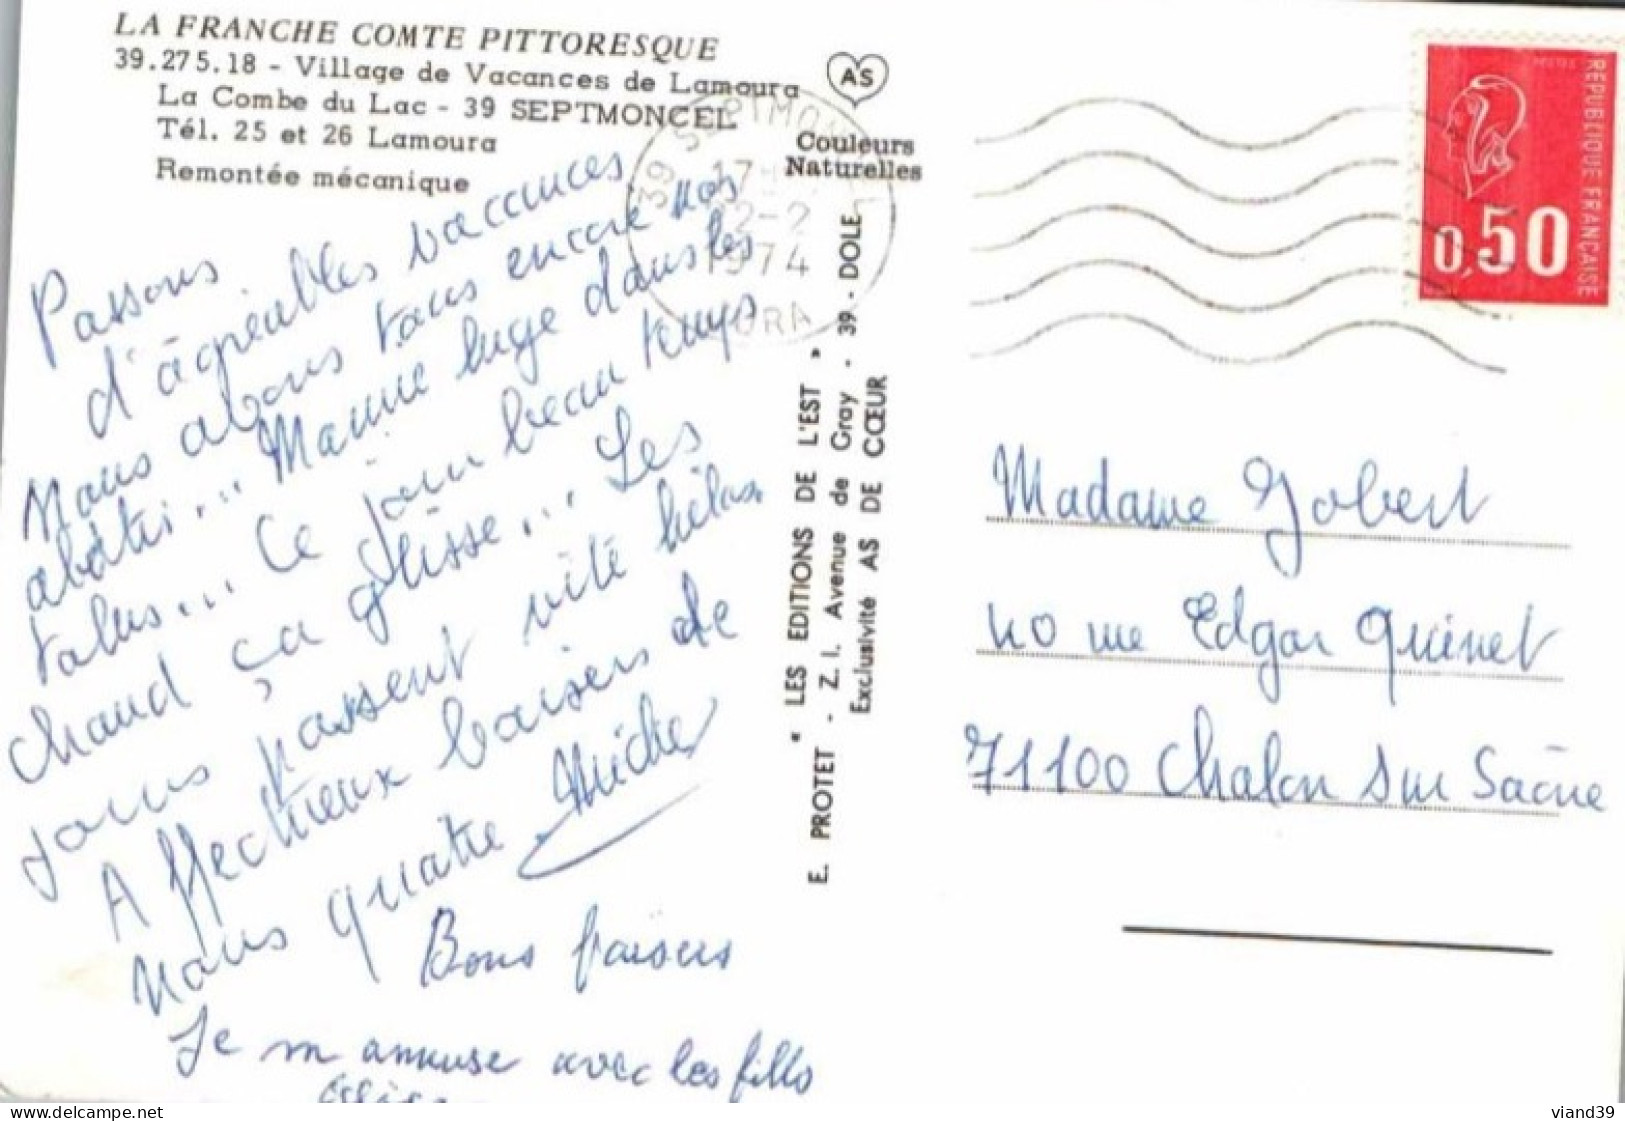 LA FRANCHE COMTE PITTORESQUE
39.275.18 - Village de Vacances de Lamoura
La Combe du Lac - 39 SEPTMONCEL
Tél. 25 et 26 Lamoura
Remontée mécanique
AS
Couleurs
Naturelles
39 SEPTMONCEL
17 H
22-2
1974
JURA
REPUBLIQUE FRANÇAISE
0,50
Passons
d'agréables vacances
Nous avons tous encore nos
abattis... Mamie luge dans les
talus... Ce jour beau temps
chaud ça glisse... Les
jours passent vite hélas
Affectueux baisers de
nous quatre
Bons baisers
Je m amuse avec les filles
E. PROTET - " LES EDITIONS DE L'EST "
Z. I. Avenue de Gray - 39 - DOLE
Exclusivité AS DE CŒUR
Madame Jobert
40 rue Edgar Quinet
71100 Chalon sur Saône
delcampe.net
viand39